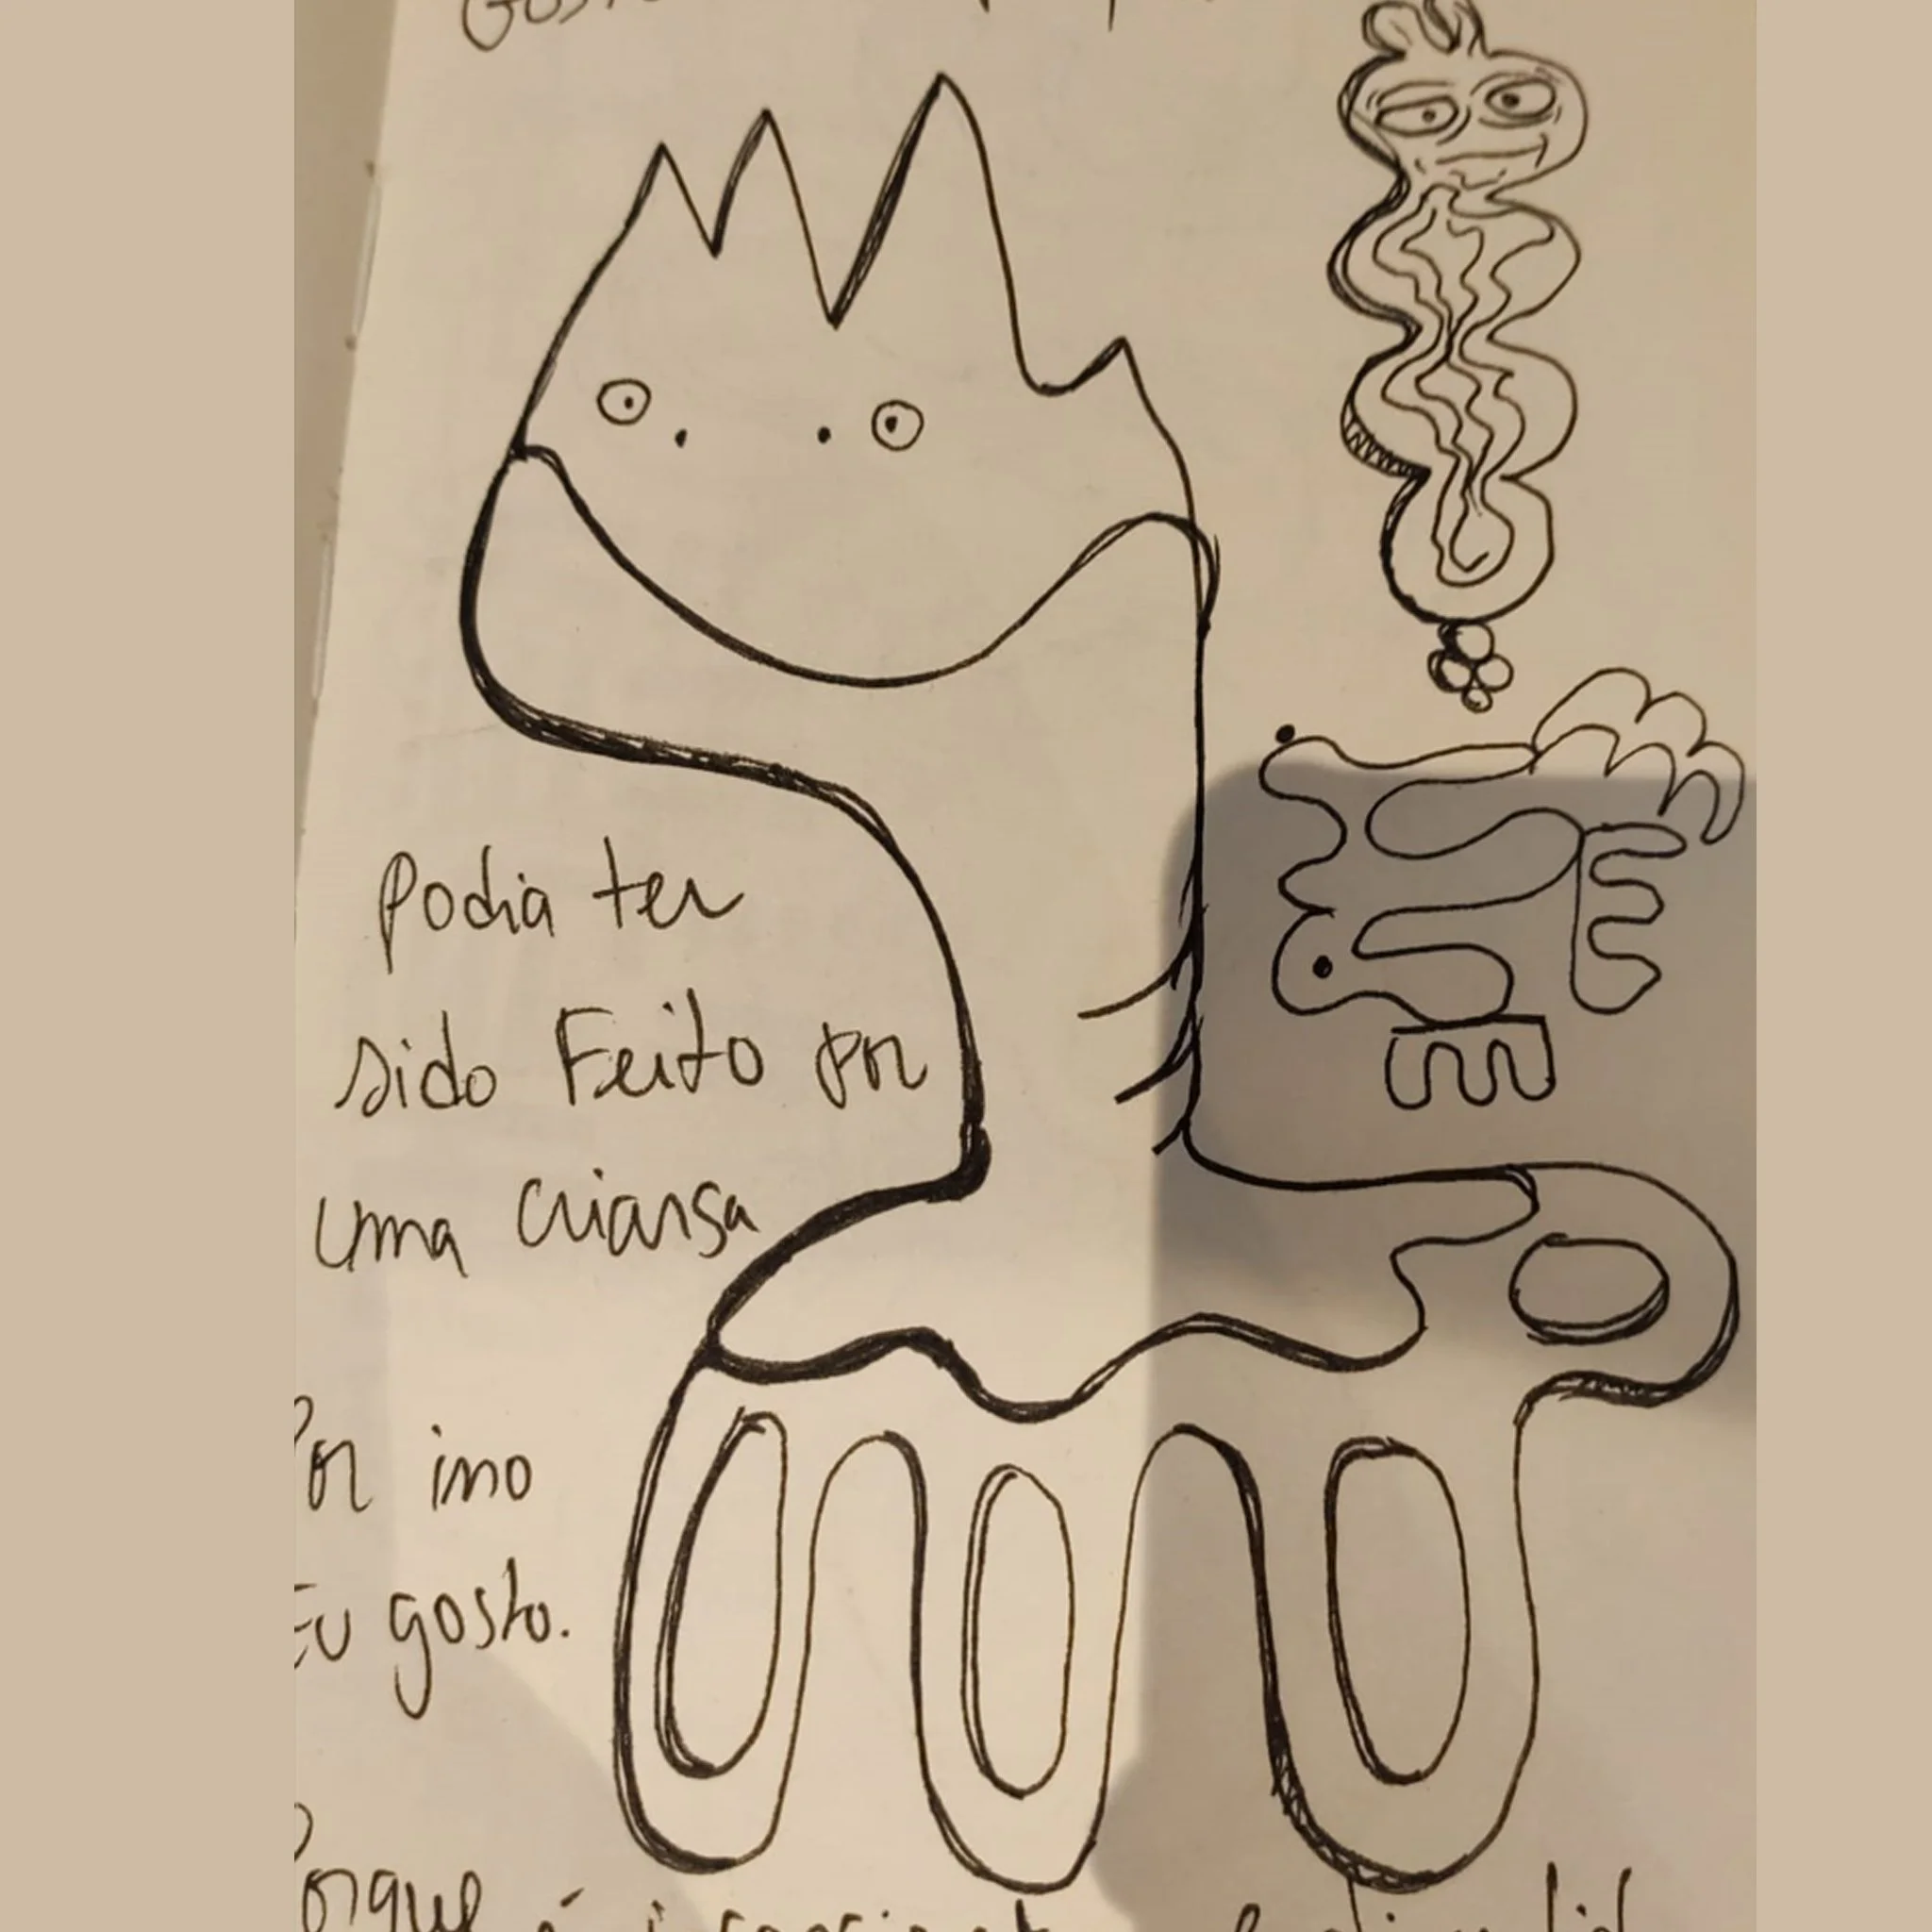 Podia ter
sido Feito por
uma criansa
Por imo
Eu gosto.
Porque é